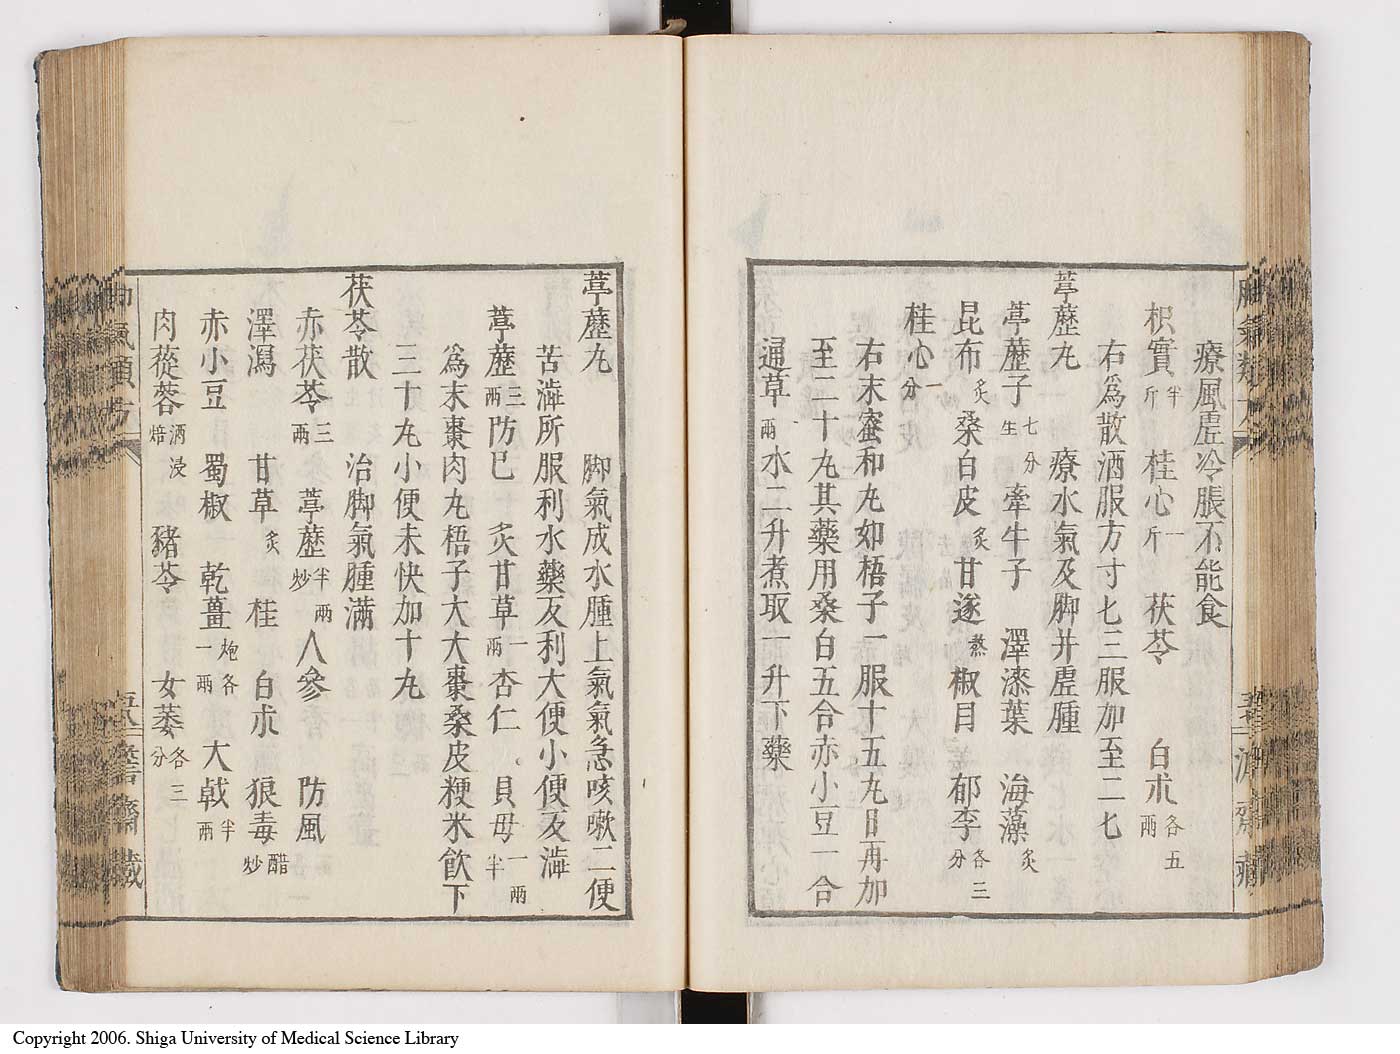 療風虛冷脹不能食
枳實半斤 桂心一斤 茯苓 白朮各五兩
右爲散酒服方寸七三服加至二七
葶藶丸 療水氣及脚并虛腫
葶藶子七分生 牽牛子 澤漆葉 海藻炙
昆布炙 桑白皮炙 甘遂熬 椒目 郁李各三分
桂心一分
右末蜜和丸如梧子一服十五丸日再加
至二十丸其藥用桑白五合赤小豆一合
通草兩水二升煮取一升下藥
葶藶丸 脚氣成水腫上氣氣急咳嗽二便
苦澁所服利水藥反利大便小便反澁
葶藶三兩 防已 炙甘草一兩 杏仁 貝母一兩半
爲末棗肉丸梧子大大棗桑皮粳米飲下
三十丸小便未快加十丸
茯苓散 治脚氣腫滿
赤茯苓三兩 葶藶半兩炒 人參 防風
澤瀉 甘草炙 桂 白朮 狼毒醋炒
赤小豆 蜀椒 乾薑炮各一兩 大戟半兩
肉蓯蓉酒浸焙 豬苓 女萎各三分
脚氣類方
Copyright 2006. Shiga University of Medical Science Library